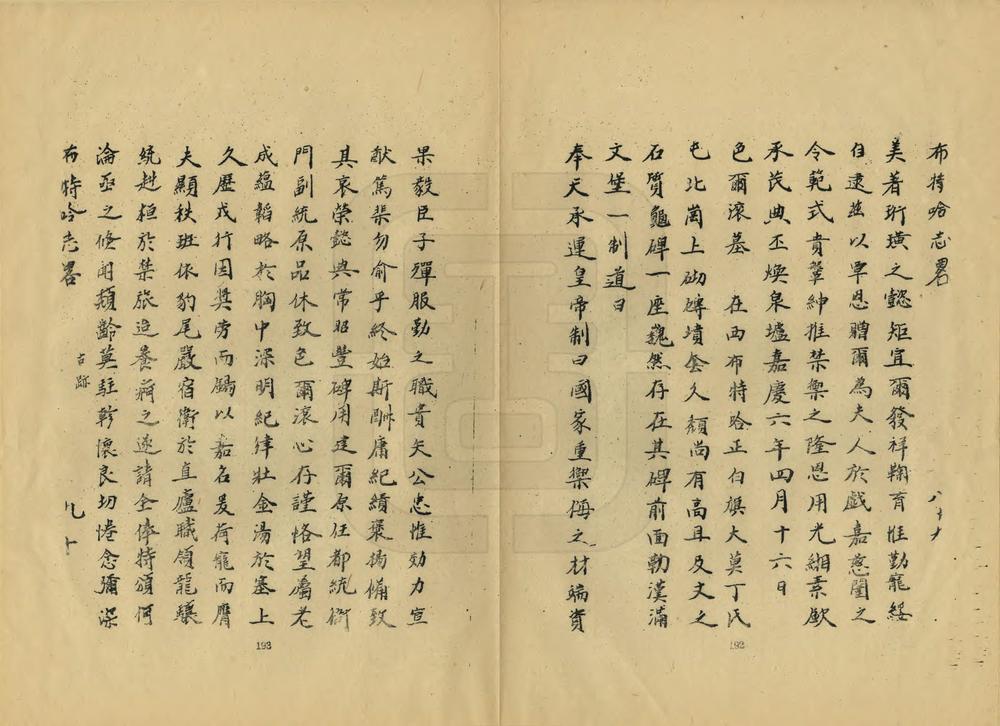 布特哈志畧 八十九
美著珩璜之懿矩宜爾發祥鞠育惟勤寵綏
自遠茲以覃恩贈爾為夫人於戲嘉慈闈之
令範式貴鞶紳推禁禦之隆恩用光緗素歆
承茂典丕煥泉壚嘉慶六年四月十六日
色爾滾墓 在西布特哈正白旗大莫丁民
屯北崗上砌磚墳奎久頹尚有高耳及文之
石質龜碑一座巍然存在其碑前面勒漢滿
文堡一制道曰
奉天承運皇帝制曰國家重禦侮之材端資
192
果毅臣子殫服勤之職貴矢公忠惟効力宣
猷篤棐勿渝乎終始斯酬庸紀績褒揚備致
其哀榮懿典常昭豐碑用建爾原任都統銜
門副統原品休致色爾滾心存謹恪望屬老
成蘊韜略於胸中深明紀律壯金湯於塞上
久歷戎行因獎勞而錫以嘉名爰荷寵而膺
夫顯秩班依豹尾嚴宿衛於直廬職領龍驤
統赳桓於禁旅迨養疴之遂請全俸特頒何
淪亟之倏聞頹齡莫駐軫懷良切惓念彌深
布特哈志畧 古跡 九十
193